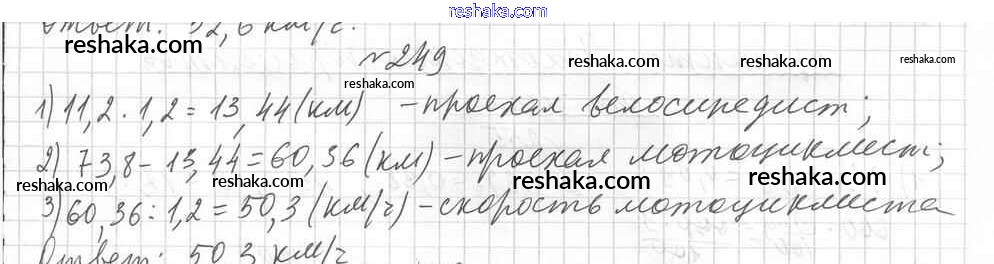 www.reshaka.com
Ответ: 52,6 км/с.
reshaka.com
№249
reshaka.com reshaka.com
reshaka.com
1) 11,2 · 1,2 = 13,44 (км) – проехал велосипедист;
reshaka.com reshaka.com reshaka.com
2) 73,8 – 13,44 = 60,36 (км) – проехал мотоциклист;
reshaka.com reshaka.com reshaka.com reshaka.com
3) 60,36 : 1,2 = 50,3 (км/ч) – скорость мотоциклиста
reshaka.com reshaka.com
Ответ: 50,3 км/ч